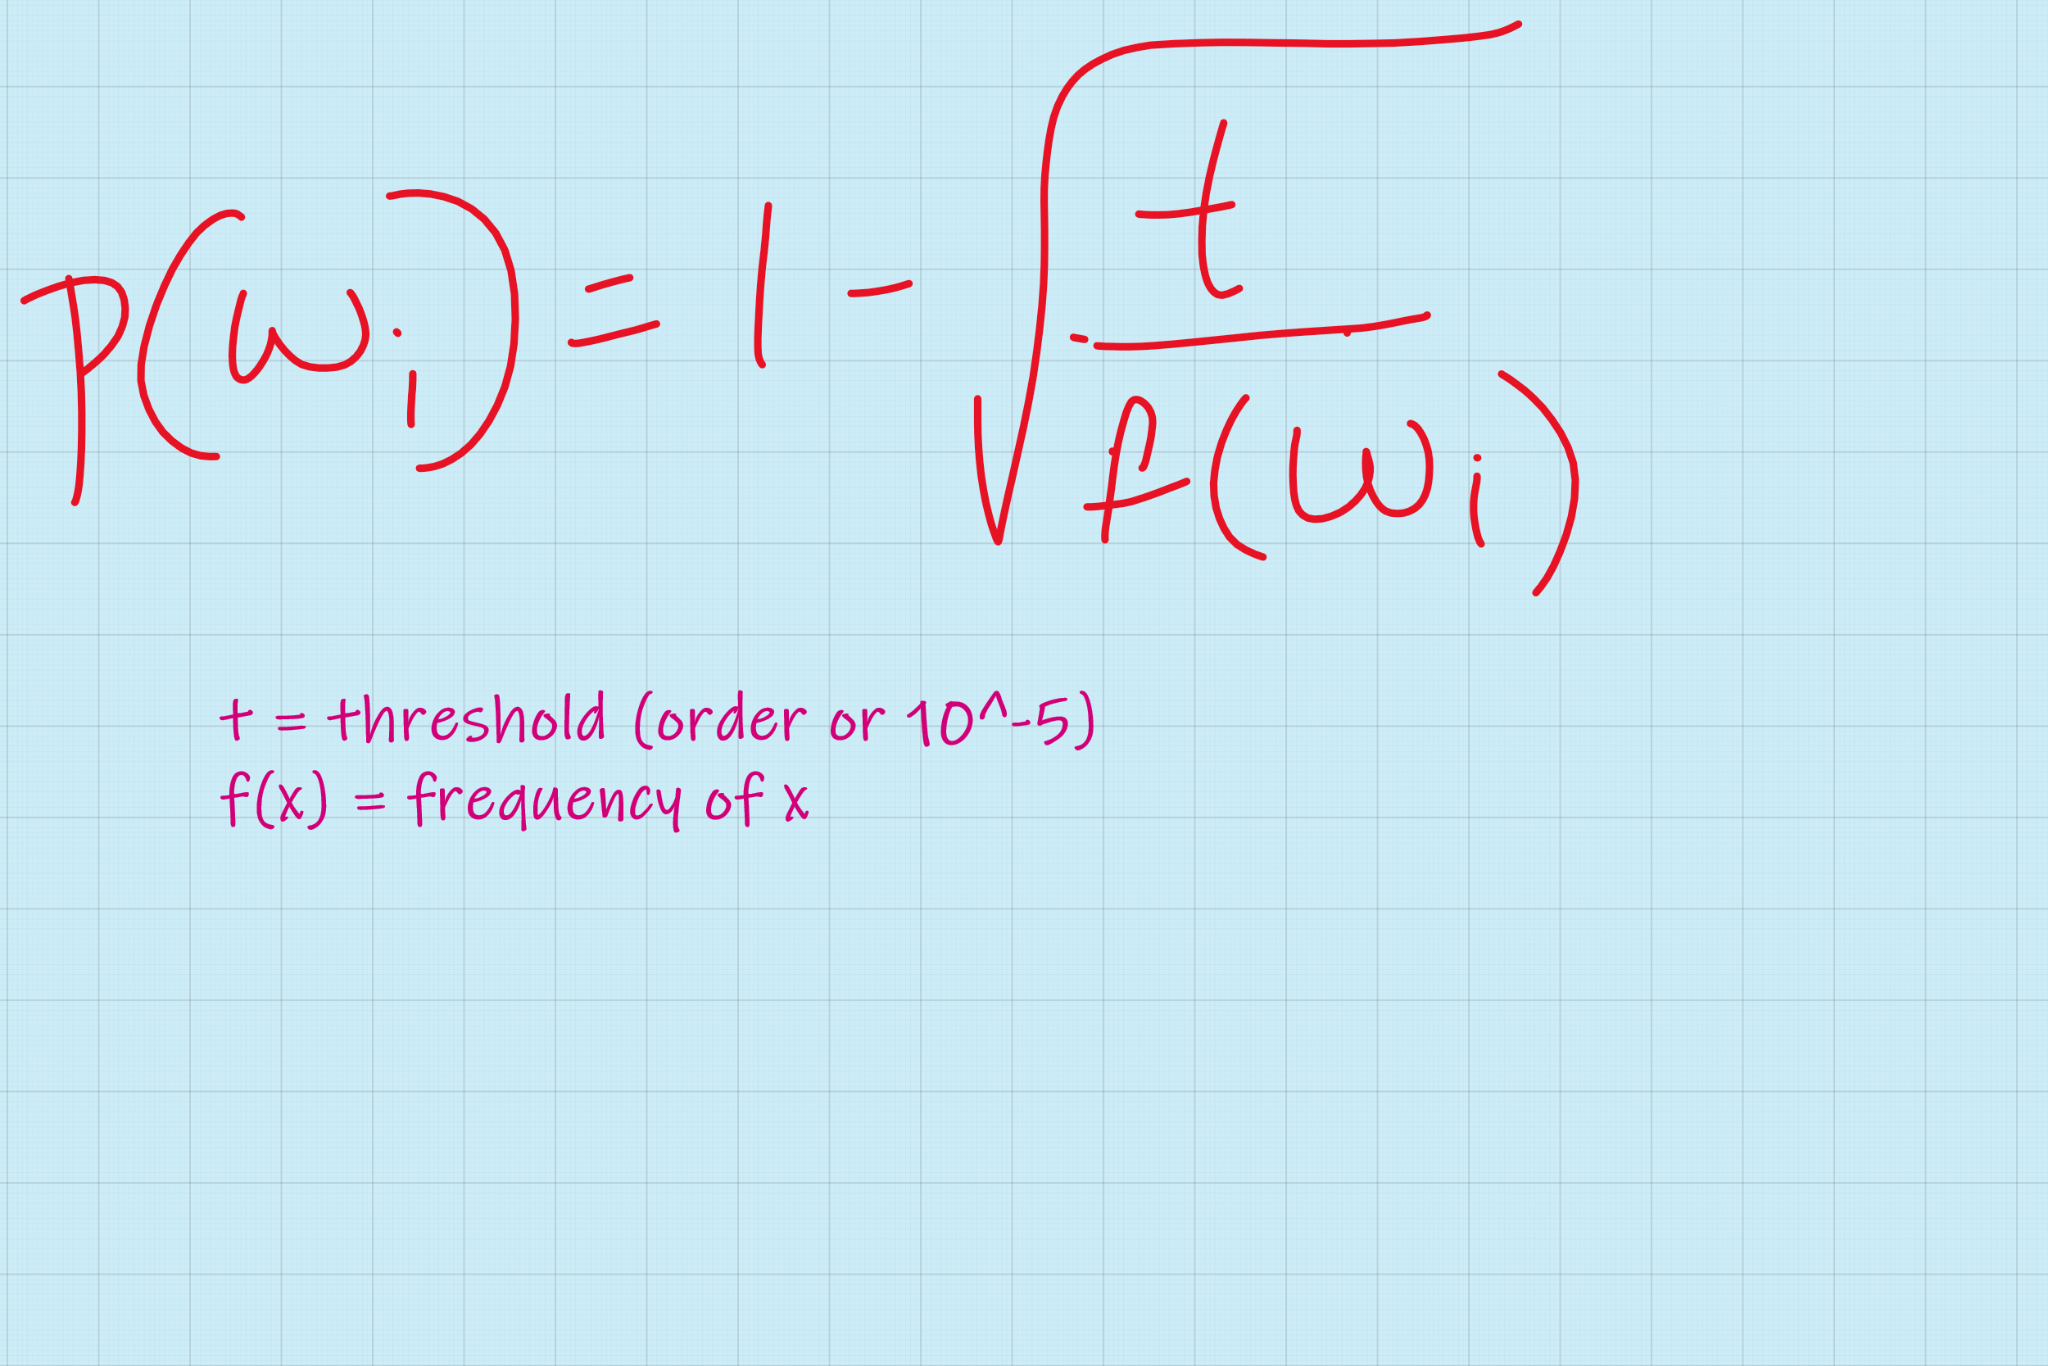 P(wi) = 1 - √(t / f(wi))
t = threshold (order or 10^-5)
f(x) = frequency of x